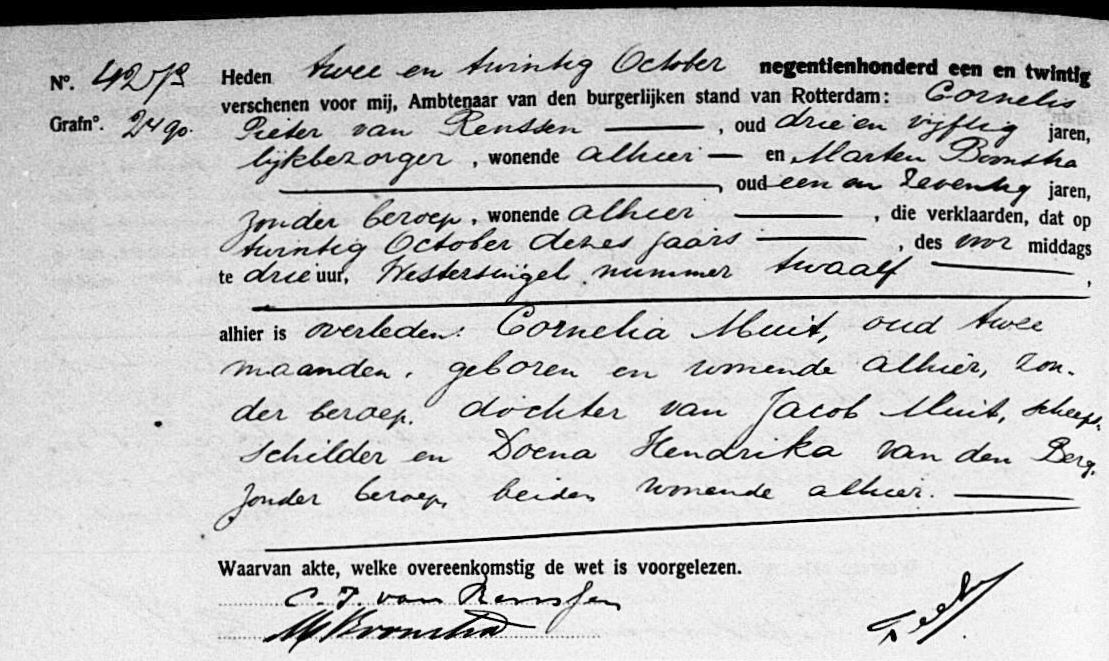 Nº. 4273 Heden twee en twintig October negentienhonderd een en twintig
verschenen voor mij, Ambtenaar van den burgerlijken stand van Rotterdam: Cornelis
Grafnº. 2490. Pieter van Renssen , oud drie en vijftig jaren,
lijkbezorger , wonende alhier en Marten Boonstra
, oud een en zeventig jaren,
zonder beroep, wonende alhier , die verklaarden, dat op
twintig October dezes jaars , des voor middags
te drie uur, Westersingel nummer twaalf ,
alhier is overleden: Cornelia Muit, oud twee
maanden, geboren en wonende alhier, zon-
der beroep, dochter van Jacob Muit, scheeps-
schilder en Doena Hendrika van den Berg,
zonder beroep, beiden wonende alhier.
Waarvan akte, welke overeenkomstig de wet is voorgelezen.
C. P. van Renssen
M Boonstra